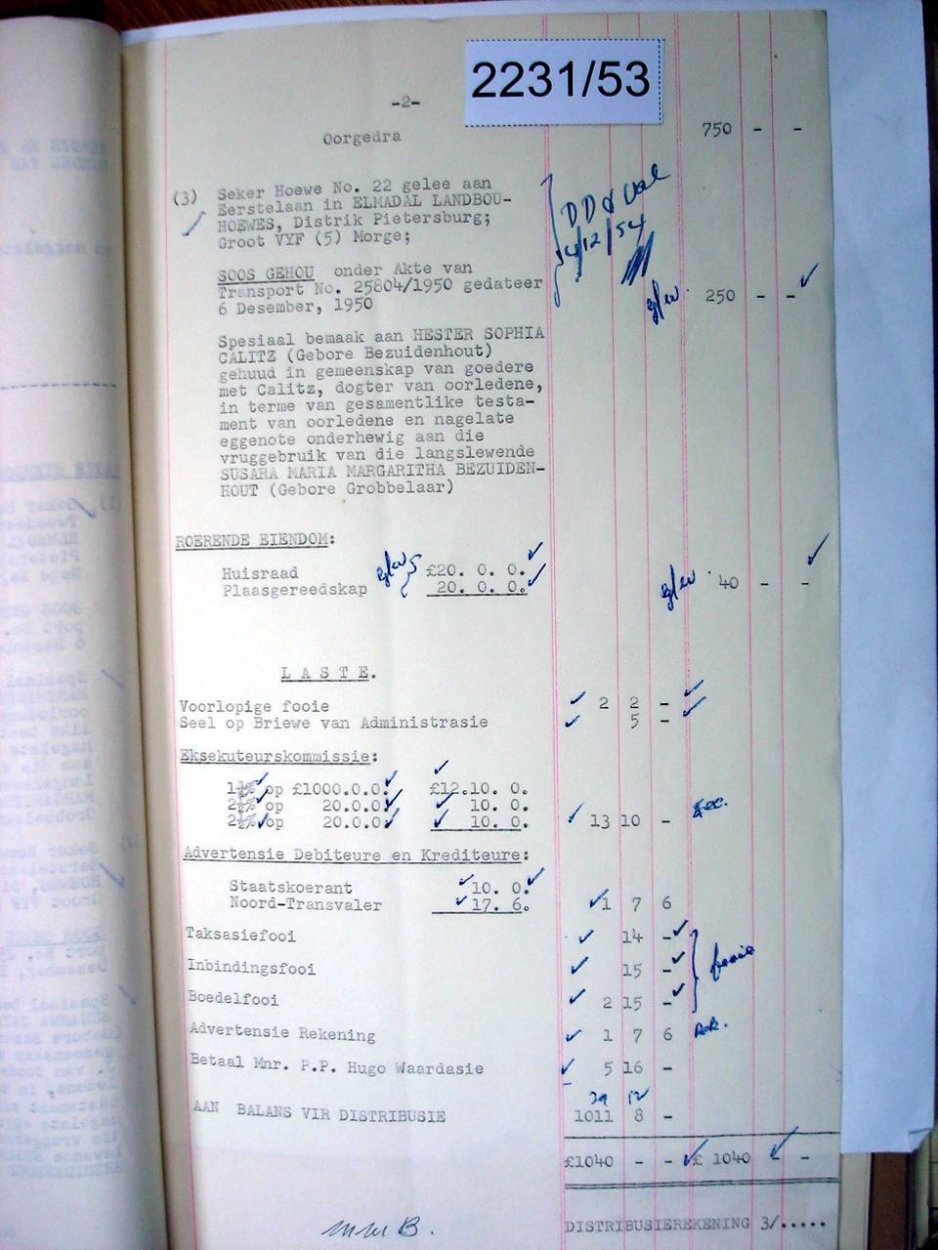 2231/53
-2-
Oorgedra 750 - -
(3) Seker Hoewe No. 22 gelee aan
Eerstelaan in ELMADAL LANDBOU-
HOEWES, Distrik Pietersburg;
Groot VYF (5) Morge;
4/12/54
SOOS GEHOU onder Akte van
Transport No. 25804/1950 gedateer
6 Desember, 1950 250 - -
Spesiaal bemaak aan HESTER SOPHIA
CALITZ (Gebore Bezuidenhout)
gehuud in gemeenskap van goedere
met Calitz, dogter van oorledene,
in terme van gesamentlike testa-
ment van oorledene en nagelate
eggenote onderhewig aan die
vruggebruik van die langslewende
SUSARA MARIA MARGARITHA BEZUIDEN-
HOUT (Gebore Grobbelaar)
ROERENDE EIENDOM:
Huisraad £20. 0. 0.
Plaasgereedskap 20. 0. 0. 40 - -
L A S T E.
Voorlopige fooie 2 2 -
Seel op Briewe van Administrasie 5 -
Eksekuteurskommissie:
1¼% op £1000.0.0. £12.10. 0.
2½% op 20.0.0. 10. 0.
2½% op 20.0.0. 10. 0. 13 10 -
Advertensie Debiteure en Krediteure:
Staatskoerant 10. 0.
Noord-Transvaler 17. 6. 1 7 6
Taksasiefooi 14 -
Inbindingsfooi 15 - fooie
Boedelfooi 2 15 -
Advertensie Rekening 1 7 6
Betaal Mnr. P.P. Hugo Waardasie 5 16 -
29 12
AAN BALANS VIR DISTRIBUSIE 1011 8 -
£1040 - - £ 1040 - -
DISTRIBUSIEREKENING 3/.....